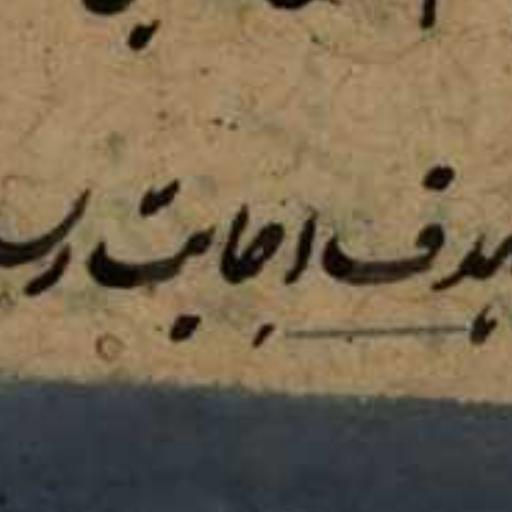 بهدف اجابت رس